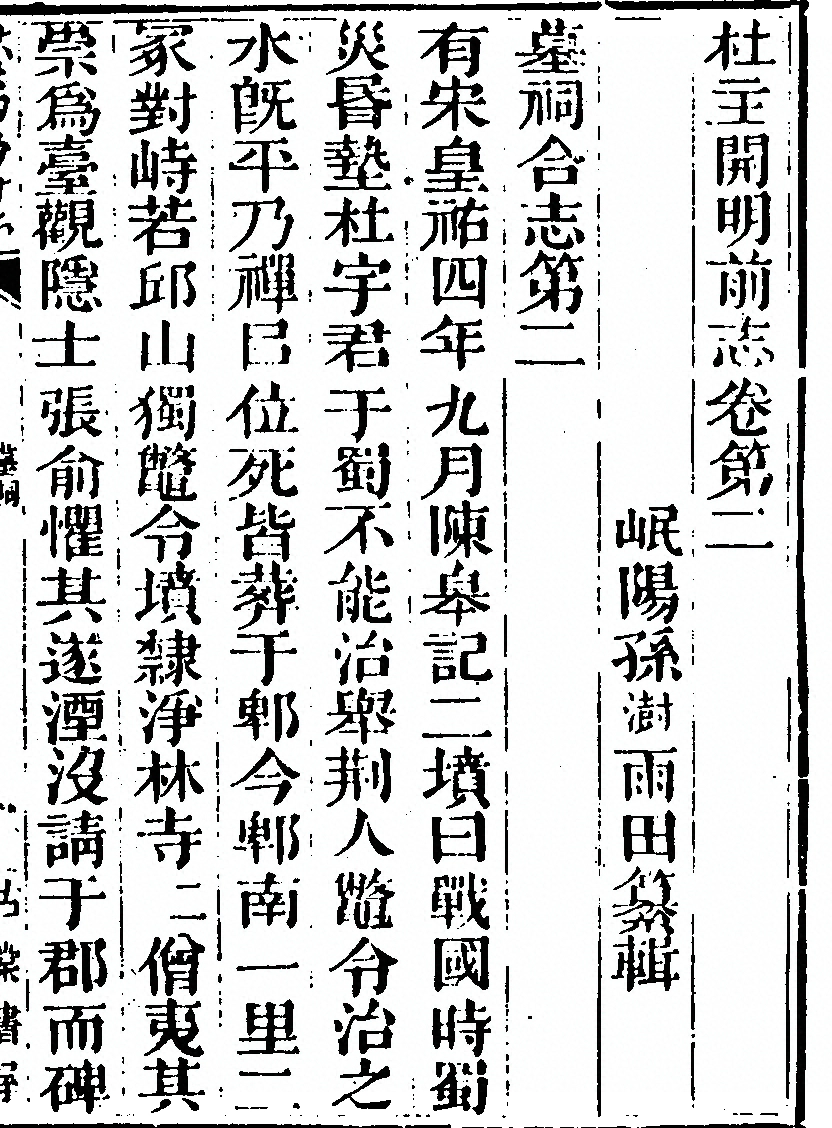 杜主開明前志卷第二
岷陽孫澍雨田纂輯
墓祠合志第二
有宋皇祐四年九月陳皋記二墳曰戰國時蜀
災昬墊杜宇君于蜀不能治舉荆人鼈令治之
水旣平乃禪已位死皆葬于郫今郫南一里二
冢對峙若邱山獨鼈令墳隸淨林寺二僧夷其
崇爲臺觀隱士張俞懼其遂湮沒請于郡而碑